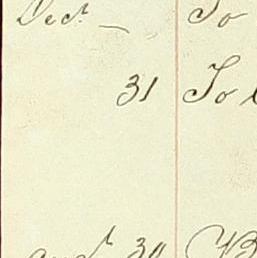 Dec.r — To
31 To
30